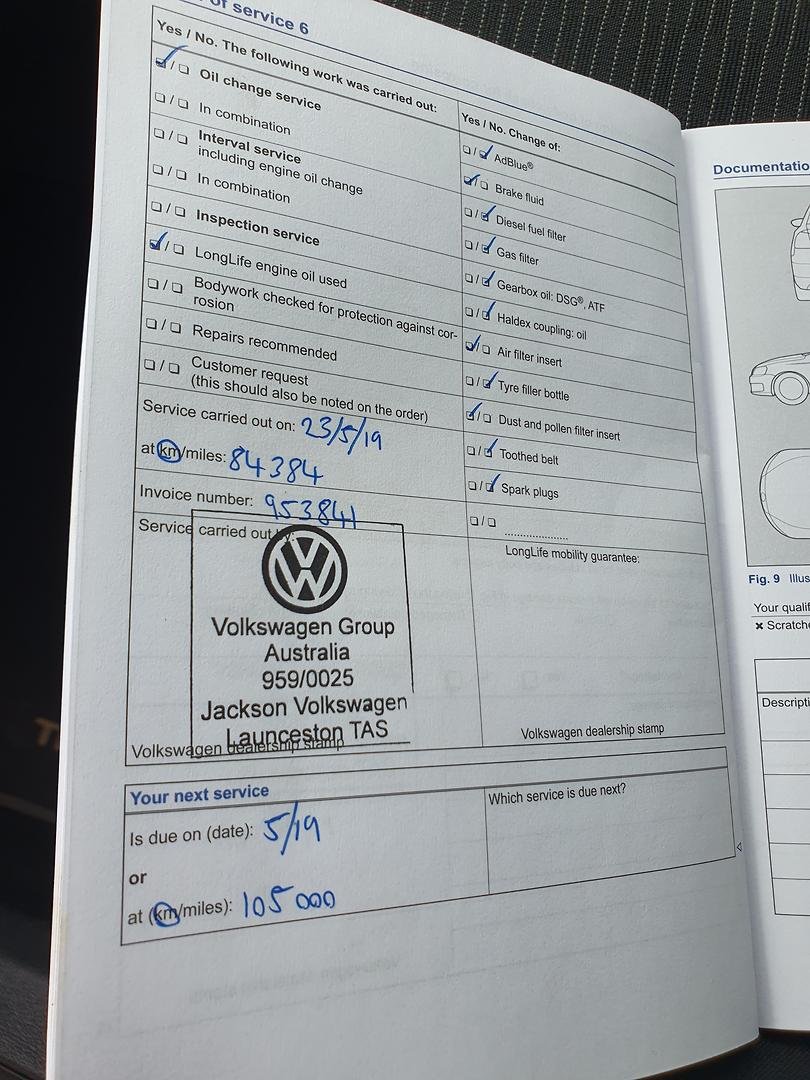 of service 6
Yes / No. The following work was carried out:
Oil change service
In combination
Interval service
including engine oil change
In combination
Inspection service
LongLife engine oil used
Bodywork checked for protection against cor-
rosion
Repairs recommended
Customer request
(this should also be noted on the order)
Service carried out on: 23/5/19
at (km/miles: 84384
Invoice number: 953841
Service carried out by:
VW
Volkswagen Group
Australia
959/0025
Jackson Volkswagen
Launceston TAS
Volkswagen dealership stamp
Yes / No. Change of:
AdBlue®
Brake fluid
Diesel fuel filter
Gas filter
Gearbox oil: DSG®, ATF
Haldex coupling: oil
Air filter insert
Tyre filler bottle
Dust and pollen filter insert
Toothed belt
Spark plugs
....................
LongLife mobility guarantee:
Volkswagen dealership stamp
Your next service
Is due on (date): 5/19
or
at (km/miles): 105 000
Which service is due next?
Documentatio
Fig. 9 Illus
Your qualif
× Scratche
Descripti